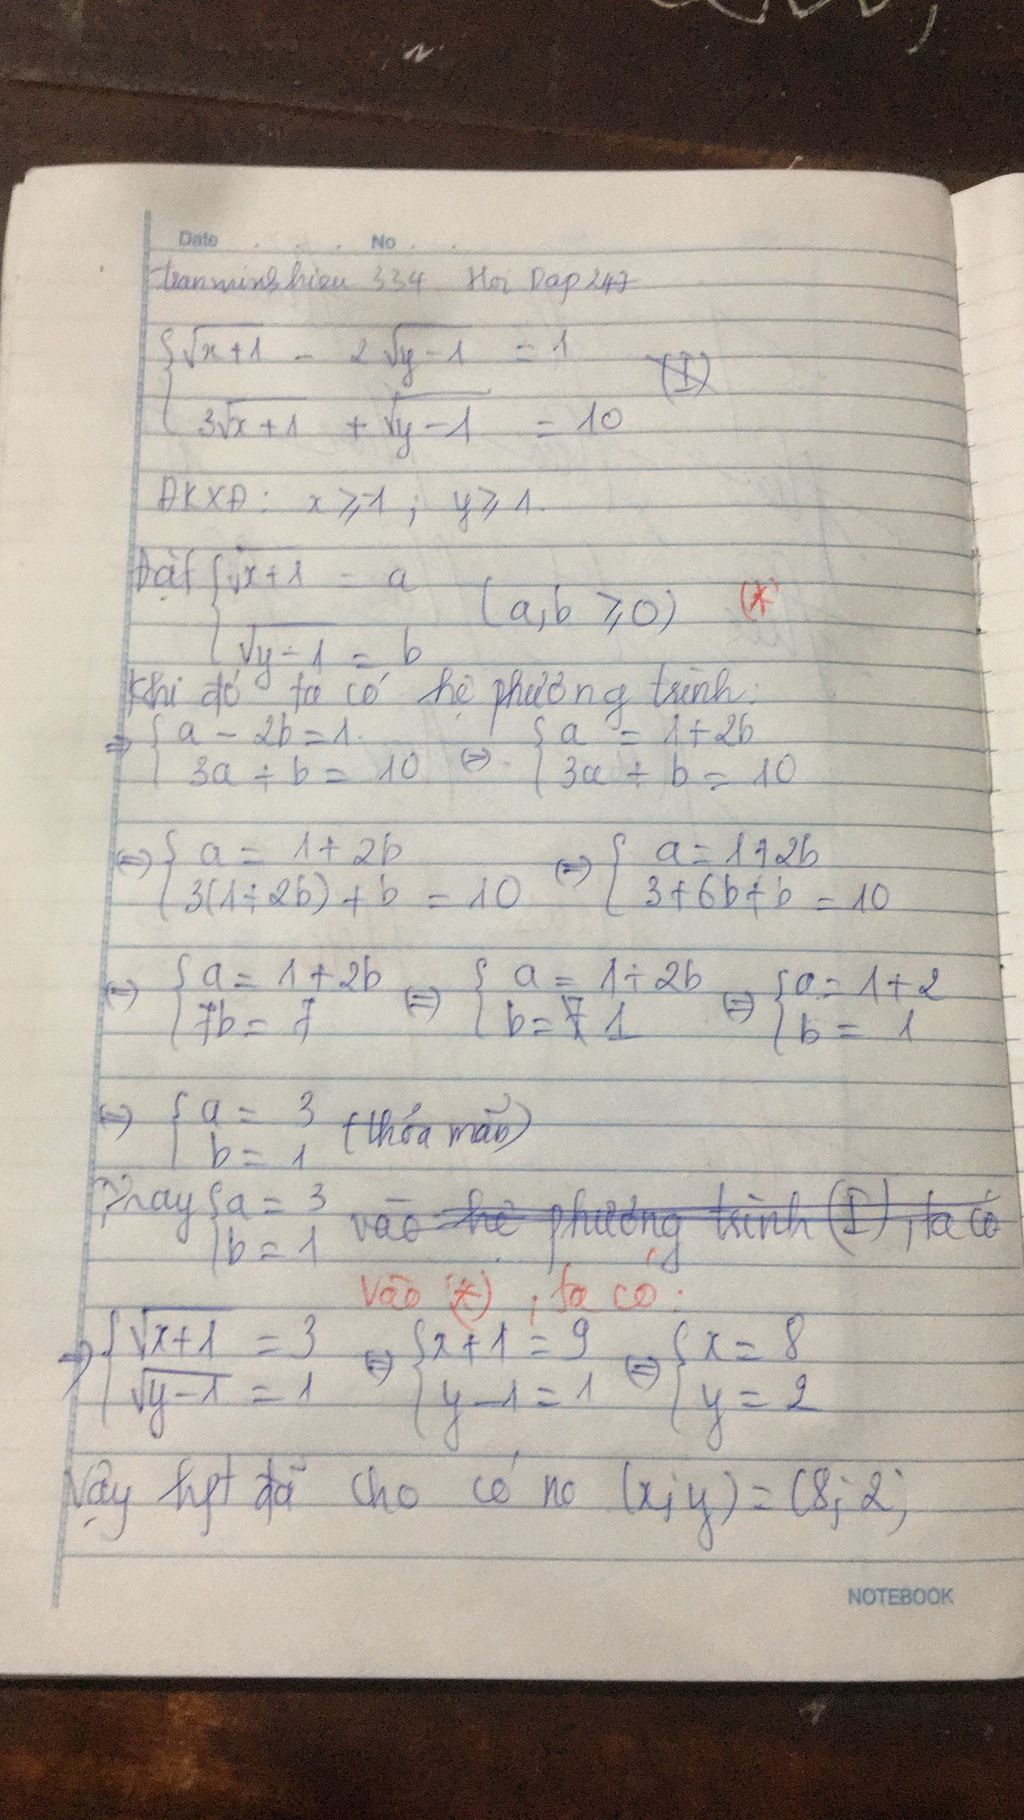 Date . . . No . .
tranminhhieu 334 Hoi Dap 247
{ √x+1 - 2√y-1 = 1
(I)
{ 3√x+1 + √y-1 = 10
ĐKXĐ: x ≥ -1 ; y ≥ 1.
Đặt { √x+1 = a
(a,b ≥ 0) (*)
{ √y-1 = b
Khi đó ta có hệ phương trình:
⇒ { a - 2b = 1. { a = 1+2b
{ 3a + b = 10 ⇔ { 3a + b = 10
⇔ { a = 1+2b ⇔ { a = 1+2b
{ 3(1+2b) + b = 10 { 3+6b+b = 10
⇔ { a = 1+2b ⇔ { a = 1+2b ⇔ { a = 1+2
{ 7b = 7 { b = 1 { b = 1
⇔ { a = 3 (thỏa mãn)
{ b = 1
Thay { a = 3 vào hệ phương trình (I), ta có
{ b = 1
vào (*), ta có:
⇒ { √x+1 = 3 ⇔ { x+1 = 9 ⇔ { x = 8
{ √y-1 = 1 { y-1 = 1 { y = 2
Vậy hpt đã cho có no (x;y) = (8;2)
NOTEBOOK